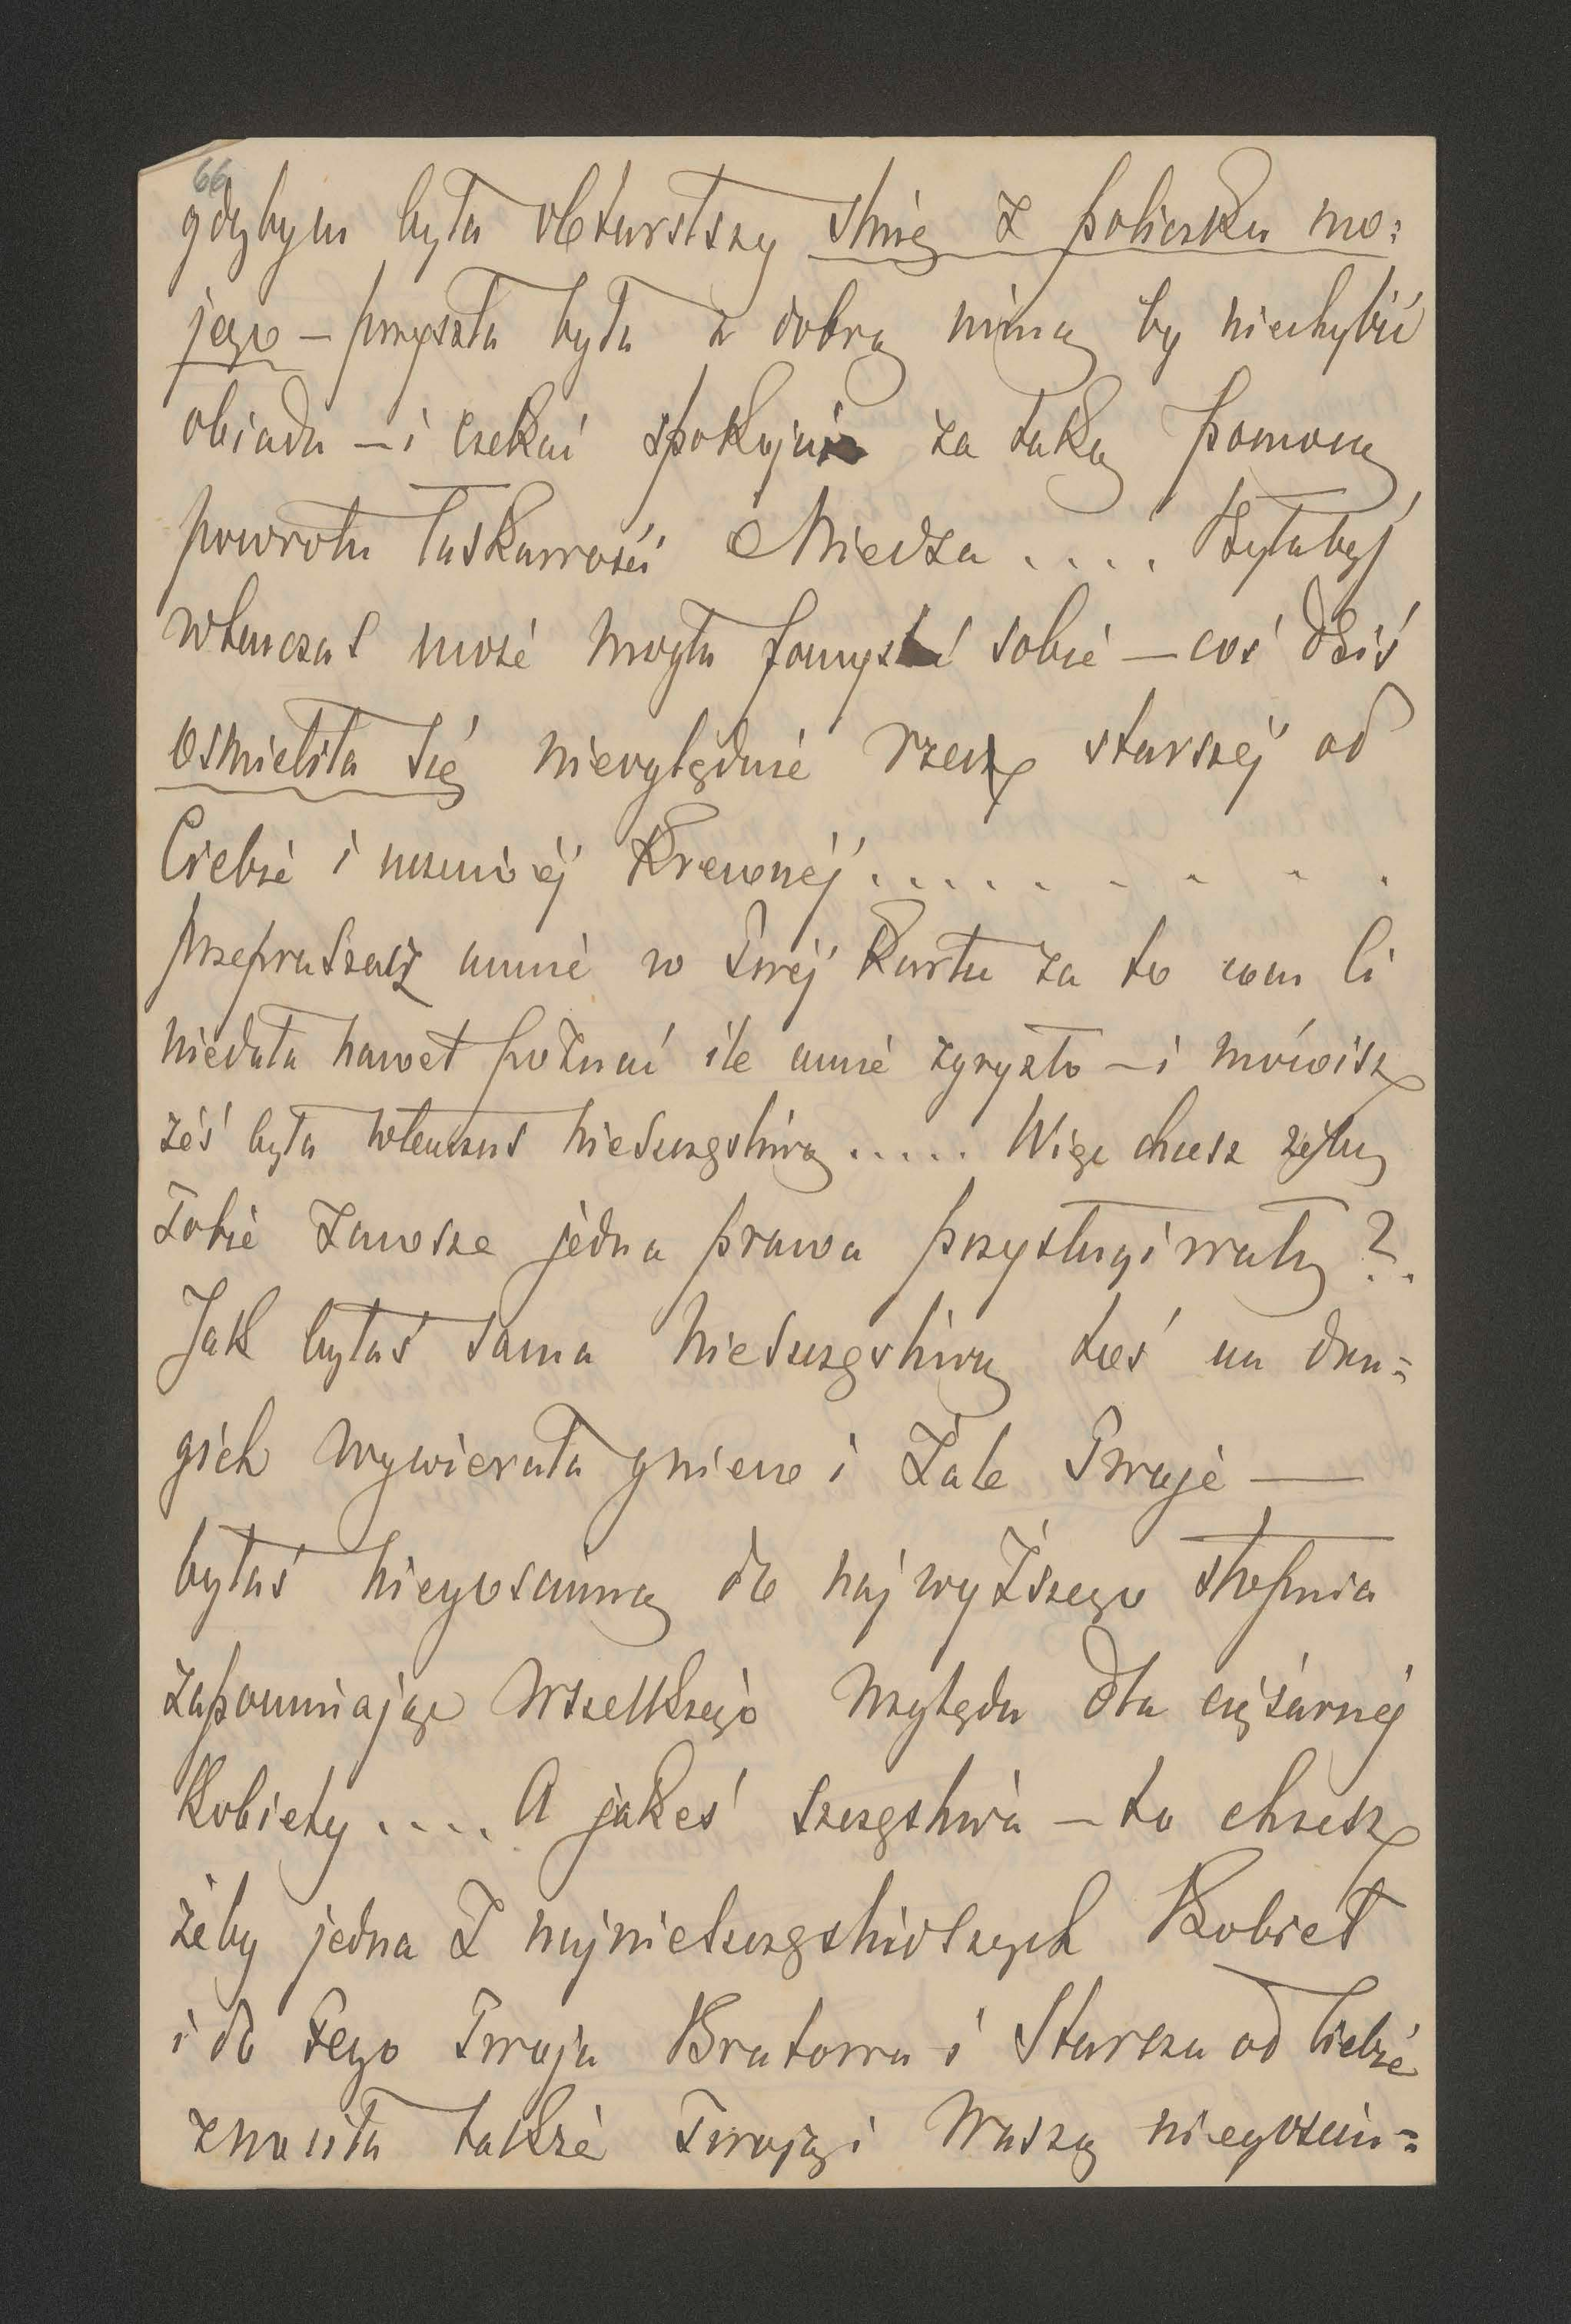 66
gdybym była obtarłszy ślinę z policzka mo=
jego – przyszła była z dobrą miną by niechybić
obiadu – i czekać spokojnie za taką pomocą
powrotu łaskawości Miedza .... Byłabyś
wtenczas może mogła pomyśleć sobie – coś dziś
ośmieliła się niewzględnie rzec starszéj od
Ciebie i krewnéj ..........
przepraszasz mnie w swéj kartce za to com Ci
niedała nawet poznać ile mnie zgryzło – i mówisz
żeś była wtenczas nieszczęśliwą ..... Więc chcesz żeby
Tobie zawsze jedna prawa przysługiwały ?.
Jak byłaś sama nieszczęśliwą toś na dru=
gich wywierała gniew i żale Twoje —
byłaś niegościnną do najwyższego stopnia
zapominając wszelkiego względu dla ciężarnéj
kobiety .... A jakeś szczęśliwa – to chcesz
żeby jedna z najnieszczęśliwszych kobiet
i do tego Twoja Bratowa i Starsza od Ciebie
znosiła także Twoją i Waszą niegościn=